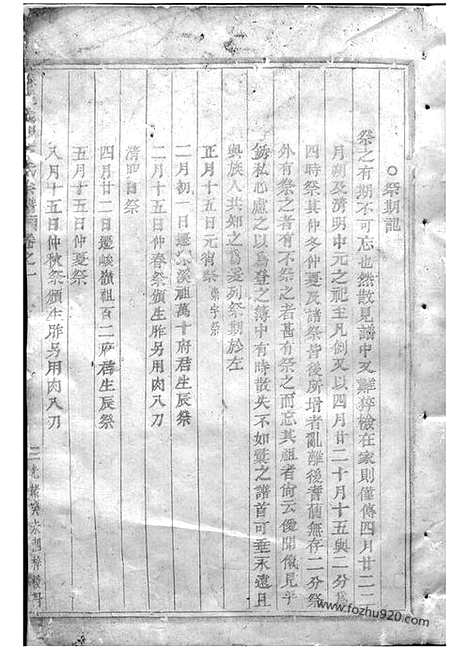 ○祭期記
祭之有期不可忘也然散見譜中又難猝檢在家則僅傳四月廿二二
月朔及清明中元之祀主凡倒叉以四月廿二十月十五與二分為
四時祭其仲冬仲夏及諸祭皆後所增者亂離後舊簡無存二分祭
外有祭之者有不祭之者甚有祭之而忘其祖者尚云優開儀見乎
私心慮之以為登之簿中有時散失不如置之譜首可垂永遠且
與族人共知之為爰列祭期於左
正月十五日元宵祭
二月初一日遷 溪祖萬十府君生辰祭
二月十五日仲春祭頒生胙另用肉八刀
清明日祭
四月廿二日遷峻嶺祖百二府君生辰祭
五月十五日仲夏祭
八月十五日仲秋祭頒生胙另用肉八刀
宗譜 卷之一
二 光緒癸未
www.fozhu920.com